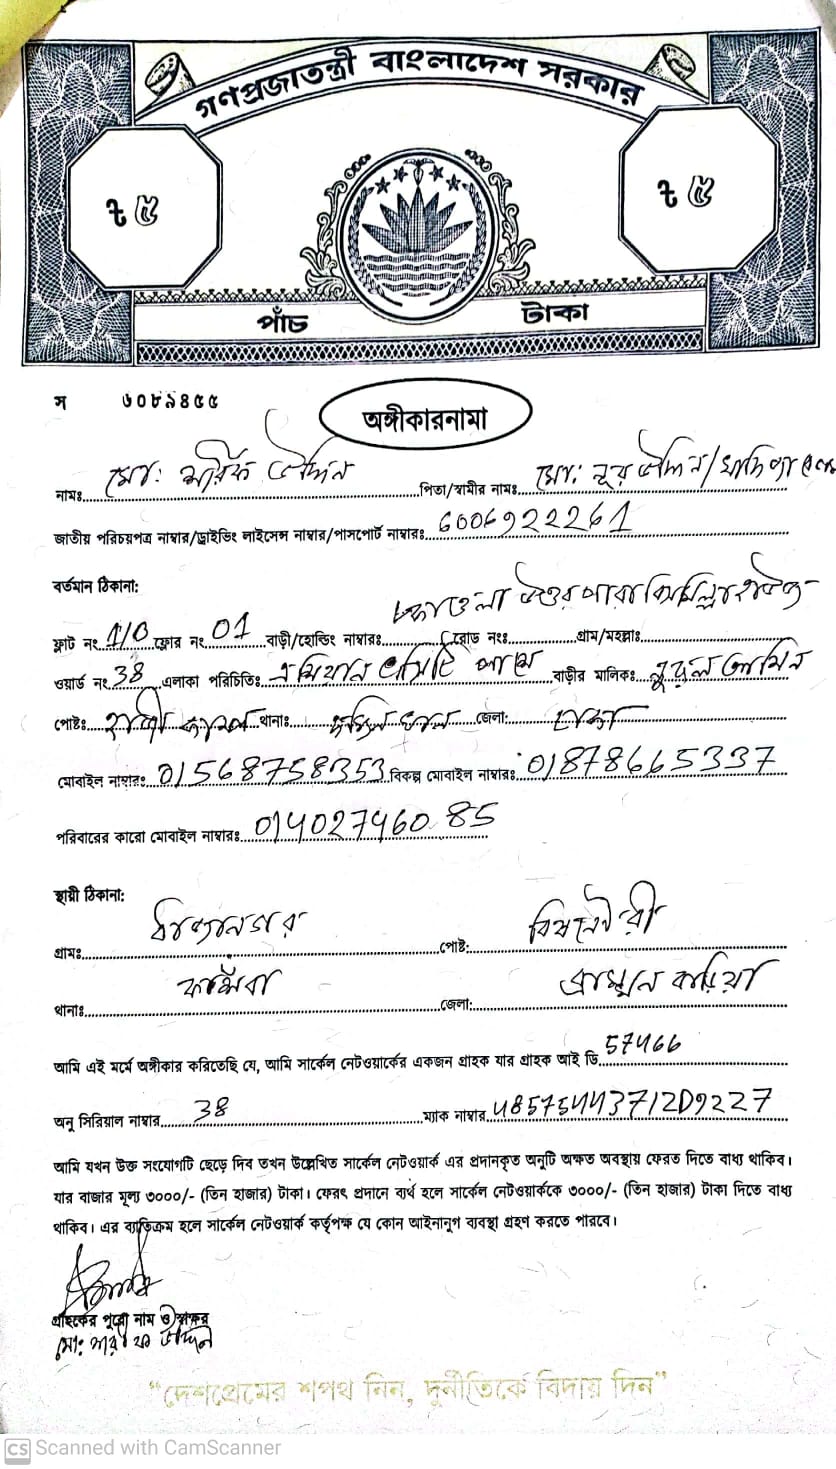 গণপ্রজাতন্ত্রী বাংলাদেশ সরকার
৳ ৫ ৳ ৫
পাঁচ টাকা
স ৬০৮৯৪৫৫
অঙ্গীকারনামা
নামঃ মোঃ উদ্দিন পিতা/স্বামীর নামঃ মোঃ নূর উদ্দিন/
জাতীয় পরিচয়পত্র নাম্বার/ড্রাইভিং লাইসেন্স নাম্বার/পাসপোর্ট নাম্বারঃ 6006922261
বর্তমান ঠিকানা:
ফ্লাট নং 1/0 ফ্লোর নং 01 বাড়ী/হোল্ডিং নাম্বারঃ রোড নংঃ গ্রাম/মহল্লাঃ
ওয়ার্ড নং 38 এলাকা পরিচিতিঃ বাড়ীর মালিকঃ নুরুল আমিন
পোষ্টঃ থানাঃ জেলা: ঢাকা
মোবাইল নাম্বারঃ 01568758353 বিকল্প মোবাইল নাম্বারঃ 01878665337
পরিবারের কারো মোবাইল নাম্বারঃ 01402746085
স্থায়ী ঠিকানা:
গ্রামঃ পোষ্ট:
থানাঃ কসবা জেলা:
আমি এই মর্মে অঙ্গীকার করিতেছি যে, আমি সার্কেল নেটওয়ার্কের একজন গ্রাহক যার গ্রাহক আই ডি 57466
অনু সিরিয়াল নাম্বার 38 ম্যাক নাম্বার 48575443712D9227
আমি যখন উক্ত সংযোগটি ছেড়ে দিব তখন উল্লেখিত সার্কেল নেটওয়ার্ক এর প্রদানকৃত অনুটি অক্ষত অবস্থায় ফেরত দিতে বাধ্য থাকিব।
যার বাজার মূল্য ৩০০০/- (তিন হাজার) টাকা। ফেরৎ প্রদানে ব্যর্থ হলে সার্কেল নেটওয়ার্ককে ৩০০০/- (তিন হাজার) টাকা দিতে বাধ্য
থাকিব। এর ব্যতিক্রম হলে সার্কেল নেটওয়ার্ক কর্তৃপক্ষ যে কোন আইনানুগ ব্যবস্থা গ্রহণ করতে পারবে।
গ্রাহকের পুরো নাম ও স্বাক্ষর
মোঃ উদ্দিন
"দেশপ্রেমের শপথ নিন, দুর্নীতিকে বিদায় দিন"
CS Scanned with CamScanner